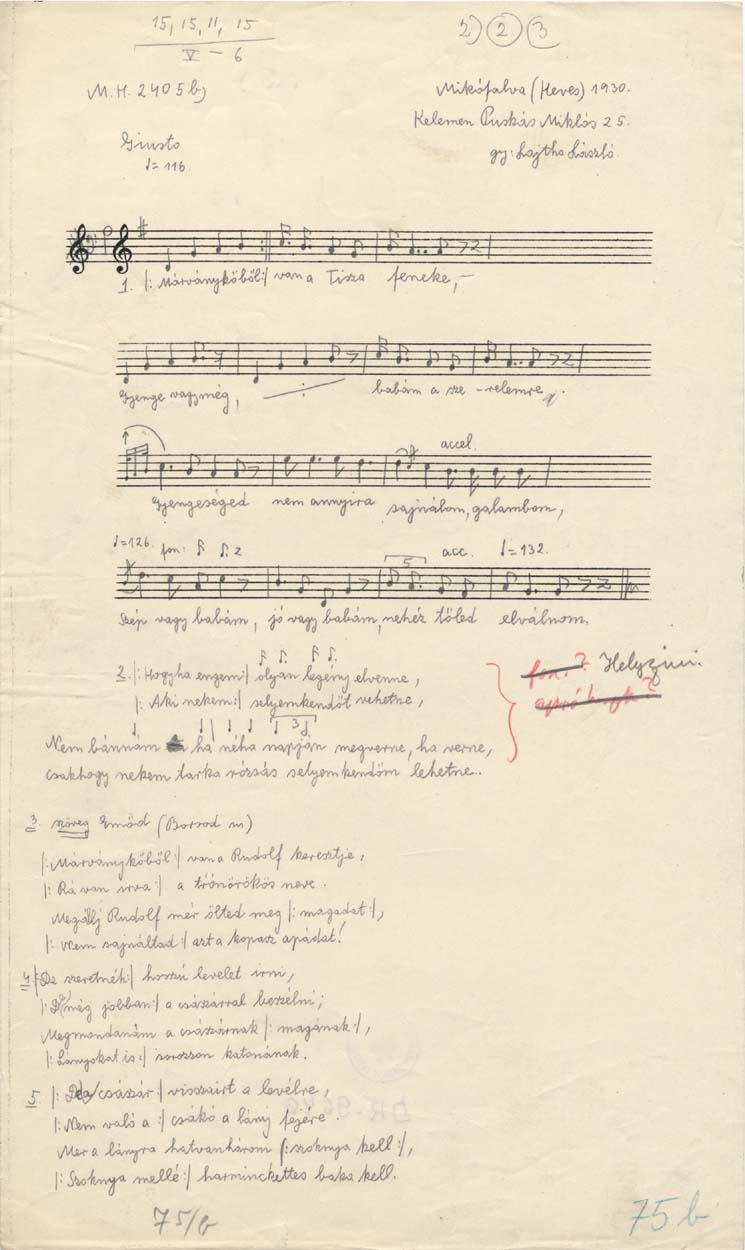 15, 15, 11, 15
V — 6
2) 2 3
M.H. 2405 b)
Mikófalva (Heves) 1930.
Kelemen Puskás Miklós 25.
gy: Lajtha László.
Giusto
♩= 116.
1. |: Márványkőből :| van a Tisza feneke, —
Gyenge vagy még, babám a sze - relemre.
accel.
Gyengeséged nem annyira sajnálom, galambom,
♩=126. fon: 2
5
acc. ♩=132.
Szép vagy babám, jó vagy babám, nehéz tőled elválnom.
2. |: Hogyha engem :| olyan legény elvenne,
|: Aki nekem :| selyemkendőt vehetne,
3
Nem bánnám ha néha napján megverne, ha verne,
csakhogy nekem tarka rózsás selyemkendőm lehetne.
fon.? Helyszíni.
3. szöveg Emőd (Borsod m)
|: Márványkőből :| van a Rudolf keresztje,
|: Rá van irva :| a trónörökös neve.
Megállj Rudolf mér ölted meg |: magadat :|,
|: Nem sajnáltad :| azt a kopasz apádat!
4. |: De szeretnék :| hosszú levelet irni,
|: De még jobban :| a császárral beszélni;
Megmondanám a császárnak |: magának :|,
|: Lányokat is :| sorozzon katonának.
5. |: De a császár :| visszairt a levélre,
|: Nem való a :| csákó a lány fejére.
Mer a lányra hatvanhárom |: szoknya kell :|,
|: Szoknya mellé :| harminckettes baka kell.
75/b
75 b